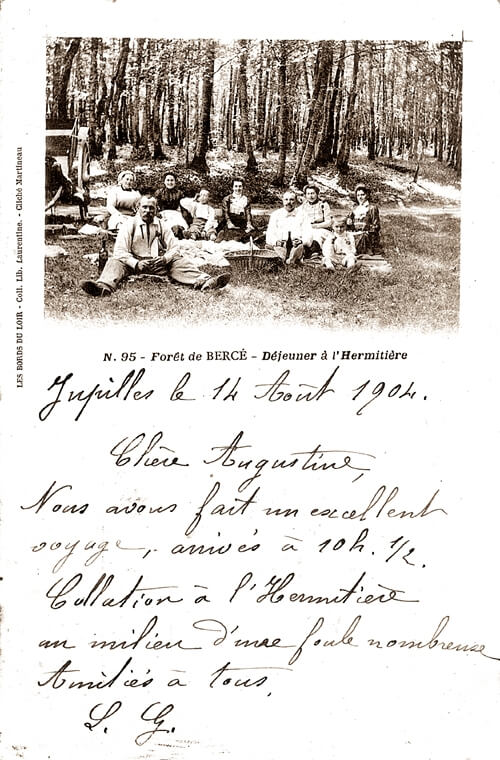 LES BORDS DU LOIR - Coll. Lib. Laurentine. - Cliché Martineau
N. 95 - Forêt de BERCÉ - Déjeuner à l'Hermitière
Jupilles le 14 Août 1904.
Chère Augustine,
Nous avons fait un excellent
voyage, arrivés à 10h. 1/2.
Collation à l'Hermitière
au milieu d'une foule nombreuse
Amitiés à tous,
L. G.